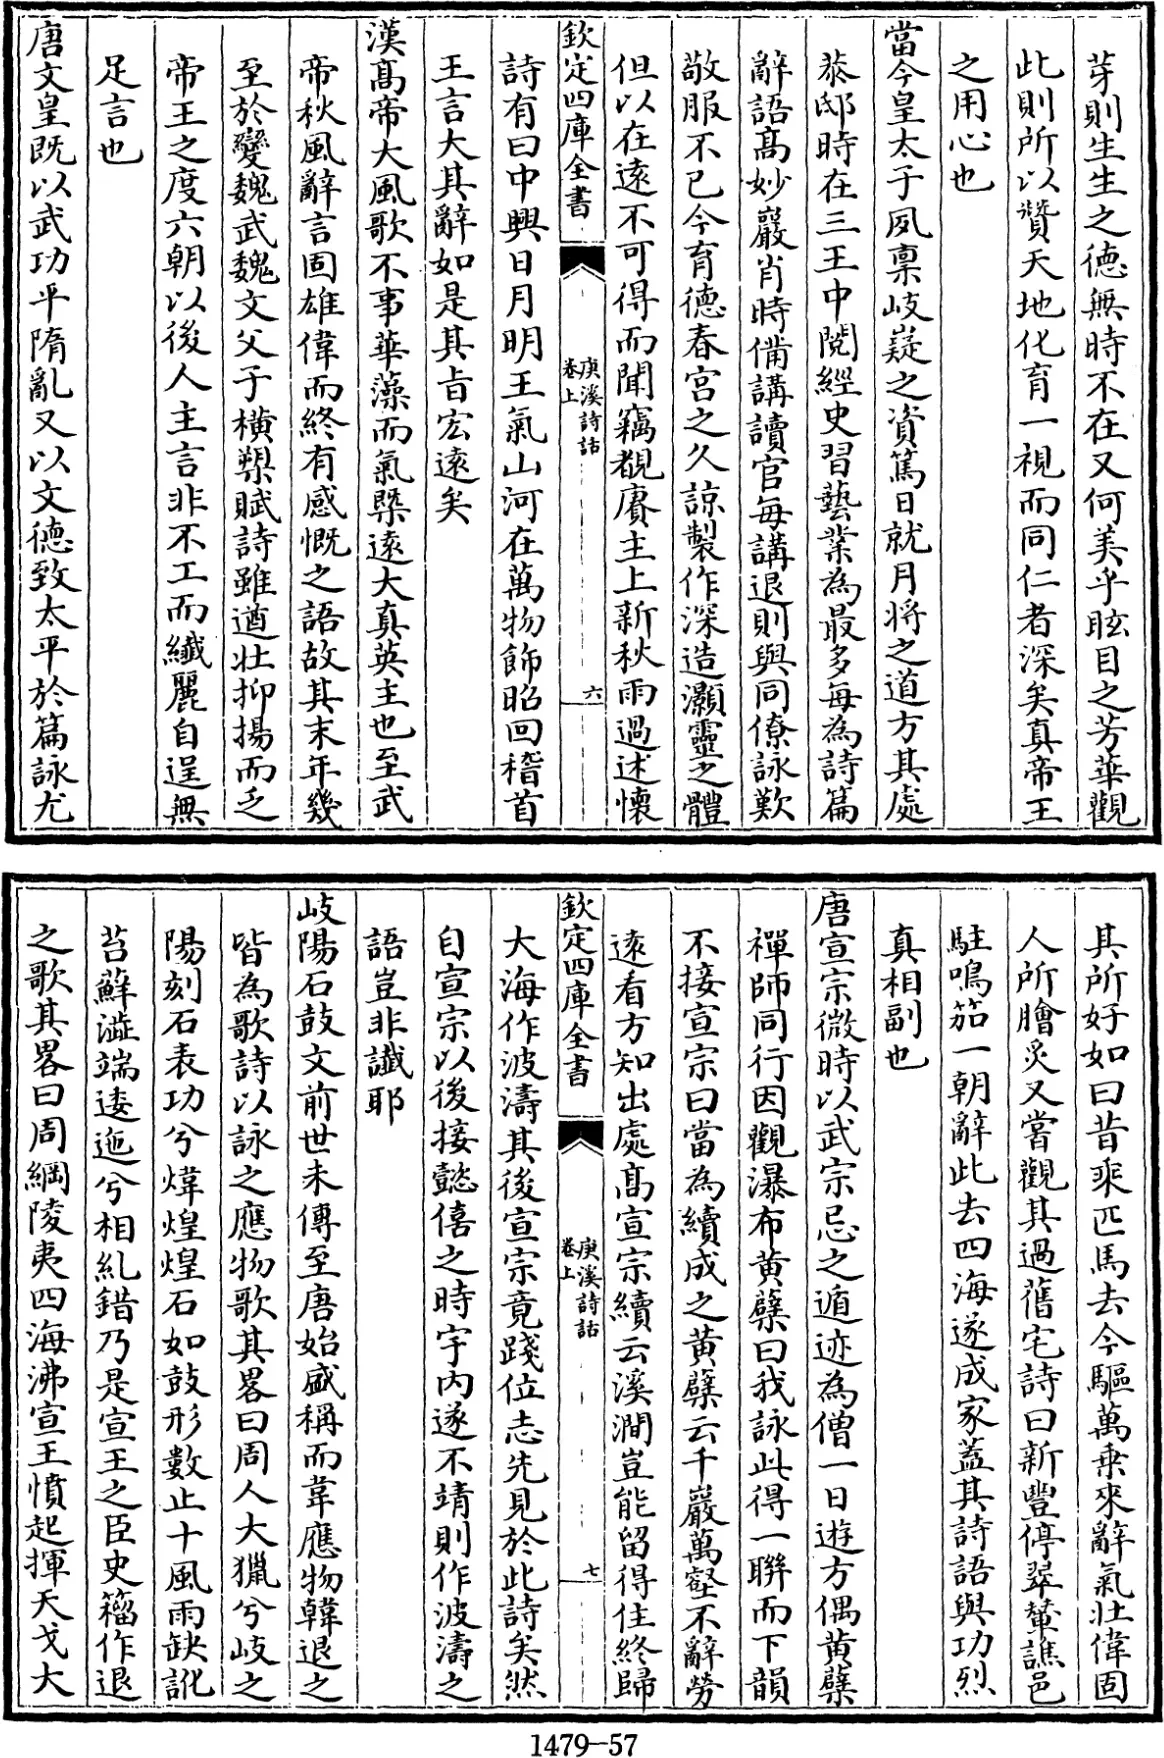 芽則生生之德無時不在又何美乎眩目之芳華觀
此則所以贊天地化育一視而同仁者深矣真帝王
之用心也
當今皇太子夙稟岐嶷之資篤日就月將之道方其處
恭邸時在三王中閱經史習藝業為最多每為詩篇
辭語髙妙巖肖時備講讀官每講退則與同僚詠歎
敬服不已今育德春宮之久諒製作深造灝靈之體
但以在逺不可得而聞竊覩賡主上新秋雨過述懷
欽定四庫全書
庚溪詩話
卷上
六
詩有曰中興日月明王氣山河在萬物飾昭回稽首
王言大其辭如是其㫖宏逺矣
漢髙帝大風歌不事華藻而氣槩逺大真英主也至武
帝秋風辭言固雄偉而終有感慨之語故其末年幾
至於變魏武魏文父子橫槊賦詩雖遒壯抑揚而乏
帝王之度六朝以後人主言非不工而纖麗自逞無
足言也
唐文皇既以武功平隋亂又以文德致太平於篇詠尤
其所好如曰昔乘匹馬去今驅萬乗來辭氣壯偉固
人所膾炙又嘗觀其過舊宅詩曰新豐停翠輦譙邑
駐鳴笳一朝辭此去四海遂成家蓋其詩語與功烈
真相副也
唐宣宗微時以武宗忌之遁迹為僧一日遊方偶黄蘗
禪師同行因觀瀑布黄蘗曰我詠此得一聯而下韻
不接宣宗曰當為續成之黄蘗云千巖萬壑不辭勞
逺看方知出處髙宣宗續云溪澗豈能留得住終歸
欽定四庫全書
庚溪詩話
卷上
七
大海作波濤其後宣宗竟踐位志先見於此詩矣然
自宣宗以後接懿僖之時宇内遂不靖則作波濤之
語豈非讖耶
岐陽石鼓文前世未傳至唐始盛稱而韋應物韓退之
皆為歌詩以詠之應物歌其畧曰周人大獵兮岐之
陽刻石表功兮煒煌煌石如鼓形數止十風雨缺訛
苔蘚澁端逶迤兮相糺錯乃是宣王之臣史籀作退
之歌其畧曰周綱陵夷四海沸宣王憤起揮天戈大
1479-57